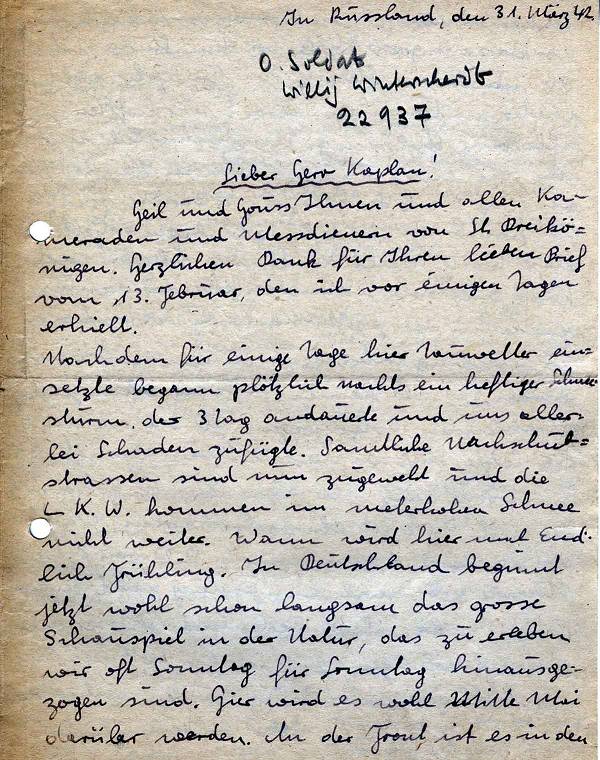 In Russland, den 31. März 42.
O. Soldat
Willy Winterscheidt
22937
Lieber Herr Kaplan!
Heil und Gruss Ihnen und allen Ka-
meraden und Messdienern von St. Dreikö=
nigen. Herzlichen Dank für Ihren lieben Brief
vom 13. Februar, den ich vor einigen Tagen
erhielt.
Nachdem für einige Tage hier Tauwetter ein-
setzte begann plötzlich nachts ein heftiger Schnee
sturm, der 3 Tag andauerte und uns aller-
lei Schaden zufügte. Samtliche Nachschub=
strassen sind nun zugeweht und die
L K. W. kommen im meterhohen Schnee
nicht weiter. Wann wird hier mal End-
lich Frühling. In Deutschland beginnt
jetzt wohl schon langsam das grosse
Schauspiel in der Natur, das zu erleben
wir oft Sonntag für Sonntag hinausge-
zogen sind. Hier wird es wohl Mitte Mai
darüber werden. An der Front ist es in den